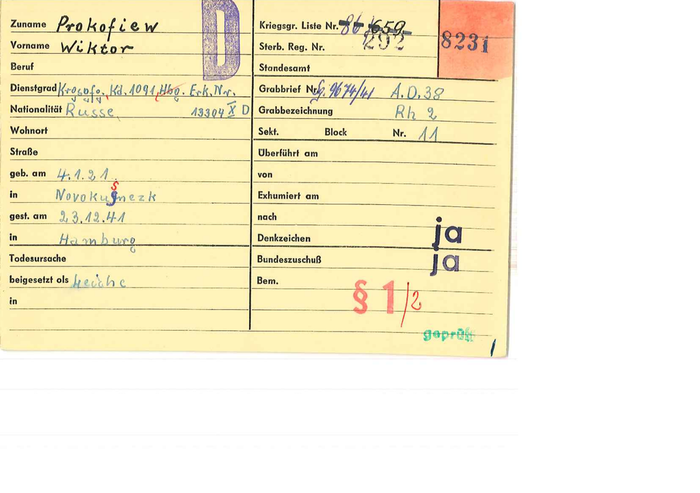 Zuname Prokofiew
Vorname Wiktor
D
Beruf
Dienstgrad Krgsgfg. Kd. 1091 Hbg. Erk. Nr.
Nationalität Russe, 13304 X D
Wohnort
Straße
geb. am 4.1.21
in Novokusnezk
gest. am 23.12.41
in Hamburg
Todesursache
beigesetzt als Leiche
in
Kriegsgr. Liste Nr. 86 659
8231
Sterb. Reg. Nr. 292
Standesamt
Grabbrief Nr. 9674/41 A.D.38
Grabbezeichnung Rh 2
Sekt. Block Nr. 11
Überführt am
von
Exhumiert am
nach
Denkzeichen ja
Bundeszuschuß ja
Bem.
§ 1/2
geprüft